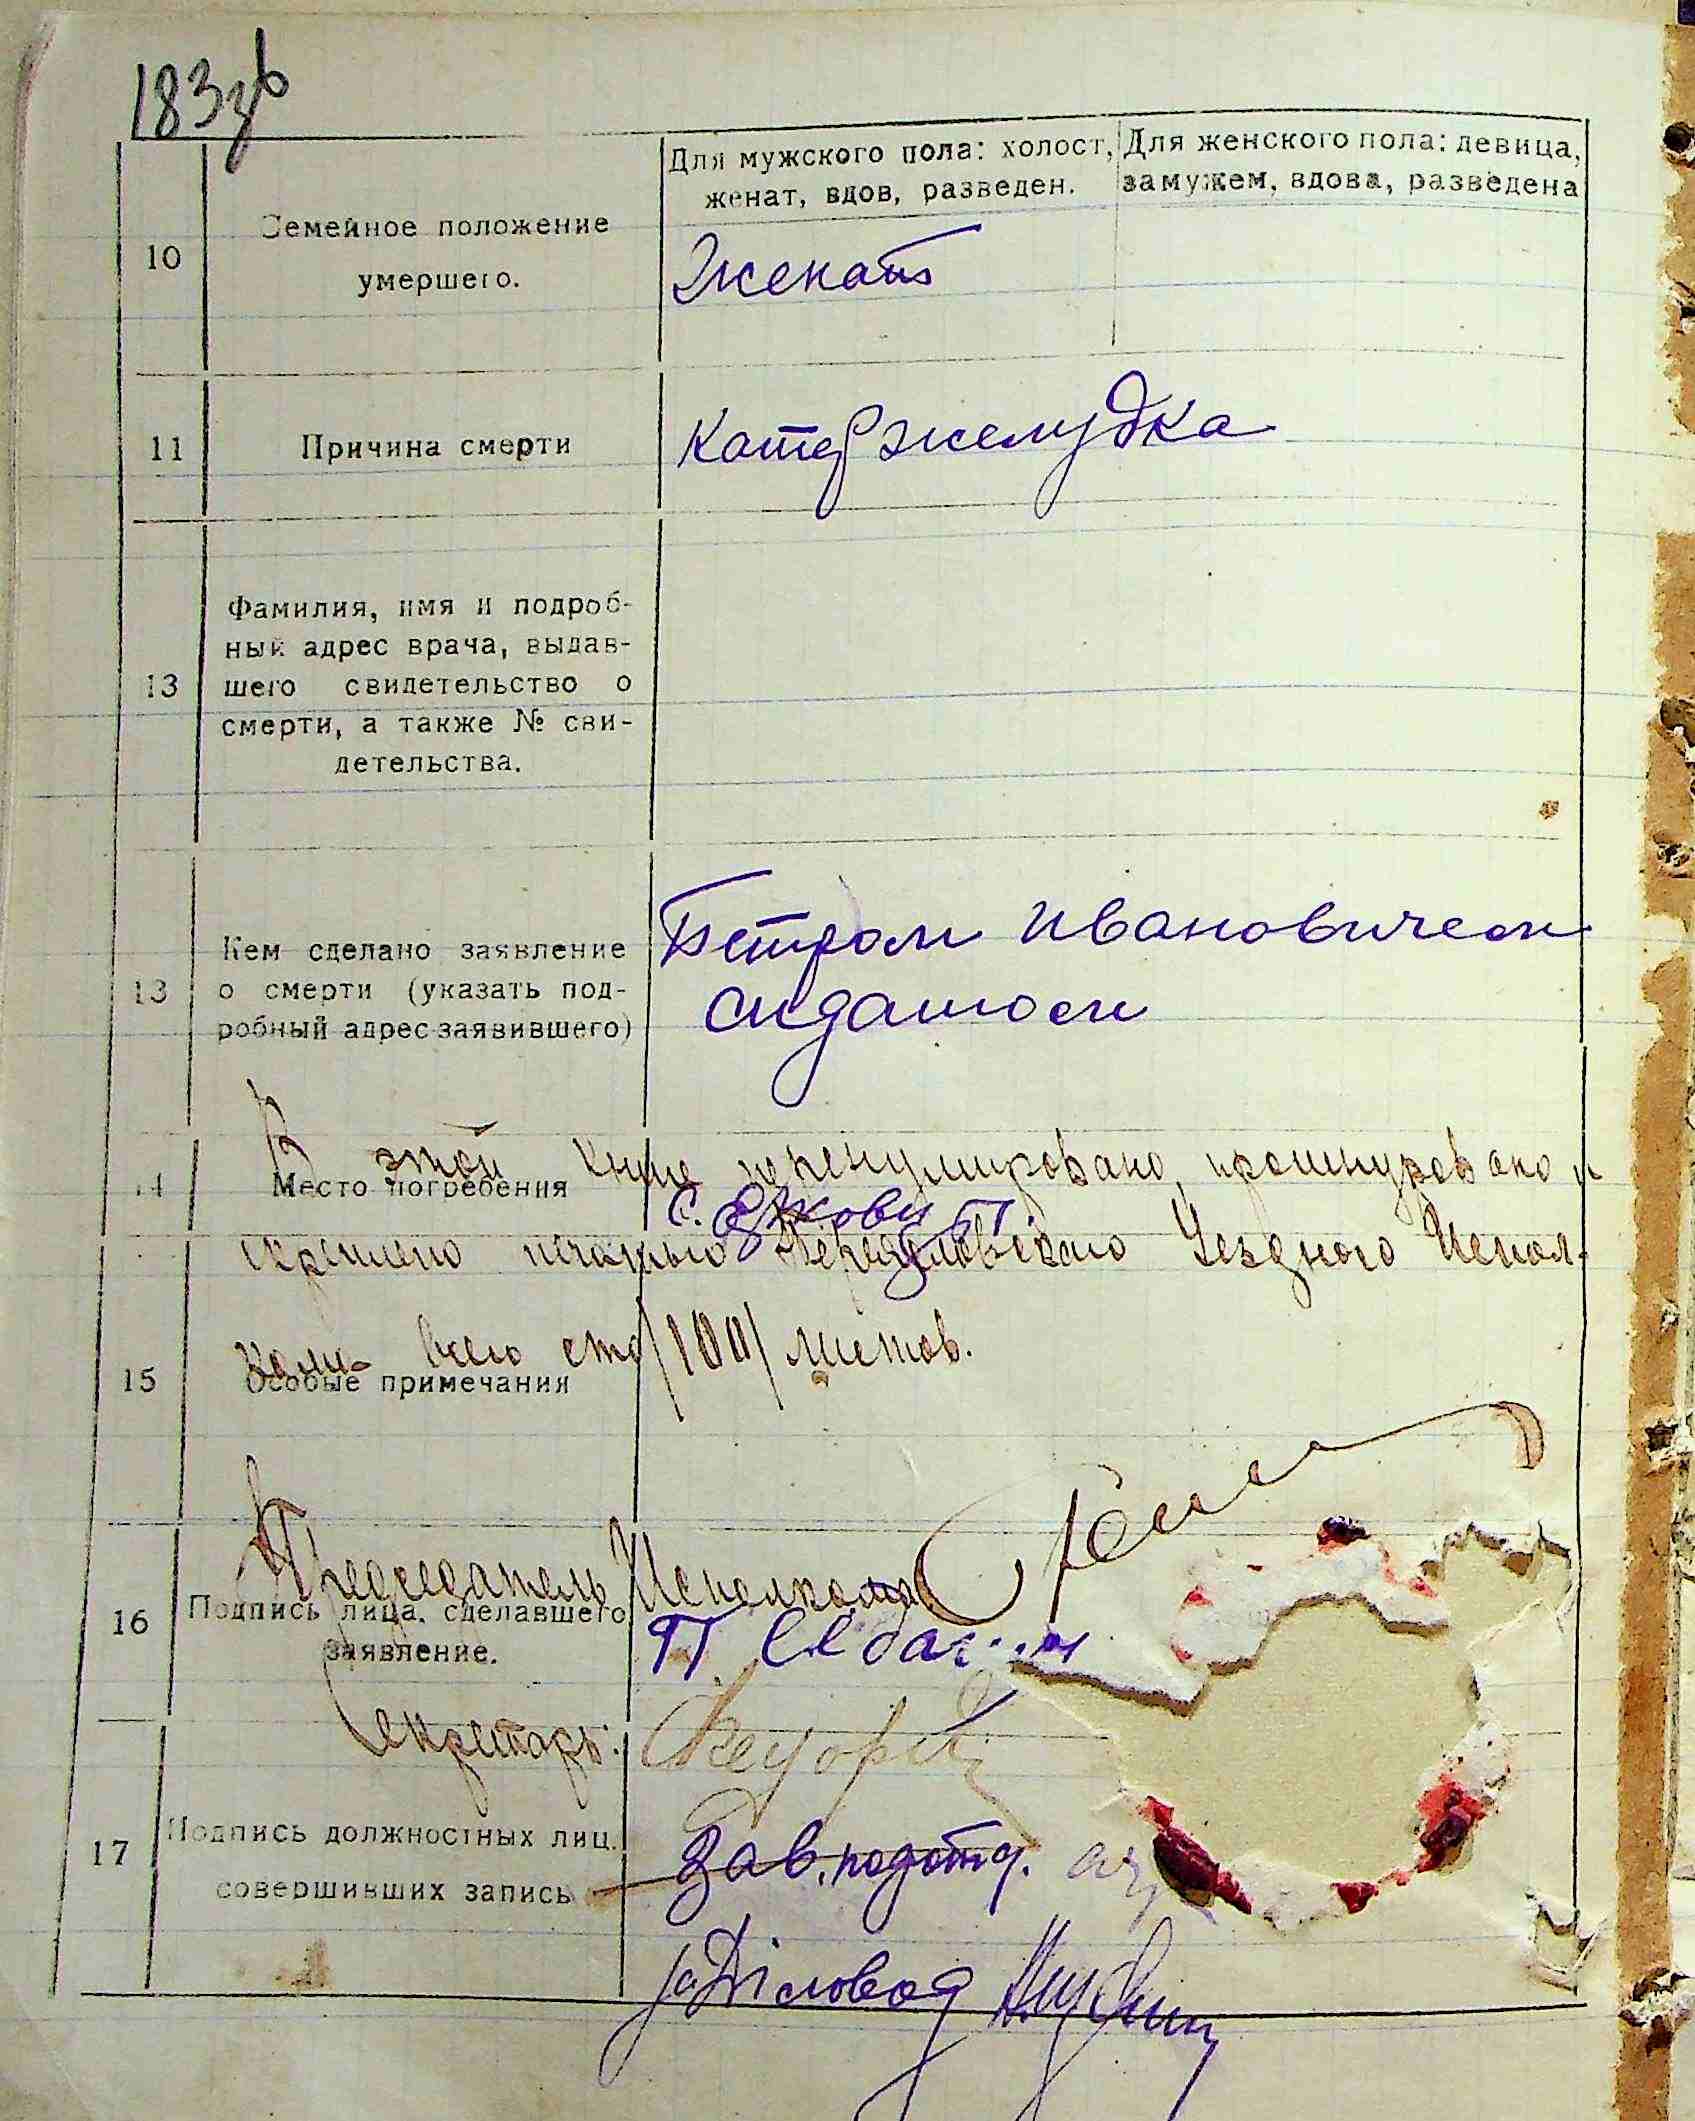 183зв
Для мужского пола: холост,
женат, вдов, разведен.
Для женского пола: девица,
замужем, вдова, разведена
10
Семейное положение
умершего.
Женат
11
Причина смерти
Катер желудка
13
Фамилия, имя и подроб-
ный адрес врача, выдав-
шего свидетельство о
смерти, а также № сви-
детельства.
13
Кем сделано заявление
о смерти (указать под-
робный адрес заявившего)
Петром Ивановичем
В этой книге перенумировано, прошнуровано и
14
Место погребения
с.
скреплено печатью Переяславского Уездного Испол-
кома всего сто /100/ листов.
15
Особые примечания
Председатель Исполкома
16
Подпись лица, сделавшего
заявление.
П
Секретарь:
17
Подпись должностных лиц.
совершивших запись
Зав. подотд.
за Діловод